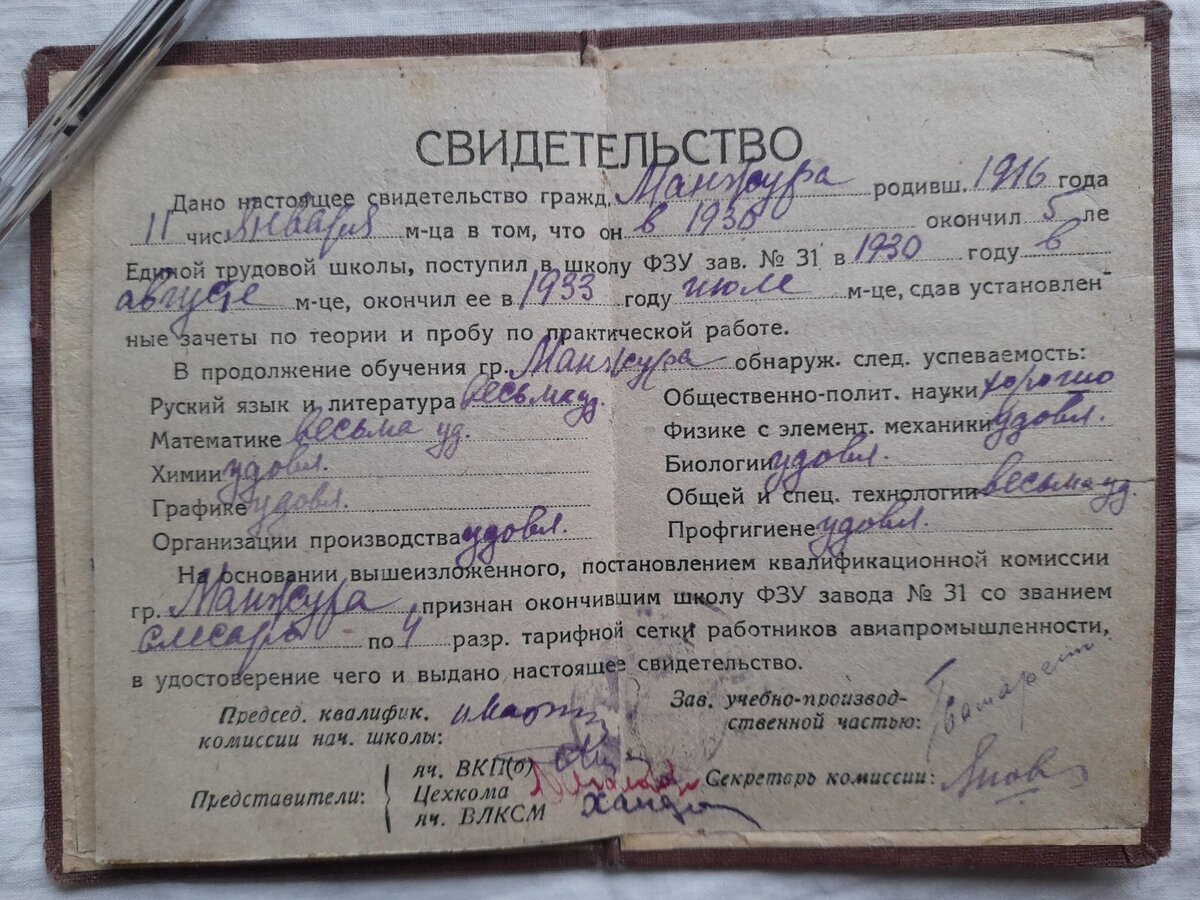 СВИДЕТЕЛЬСТВО
Дано настоящее свидетельство гражд. Манжура родивш. 1916 года
11 чис. января м-ца в том, что он в 1930 окончил 5 ле
Единой трудовой школы, поступил в школу ФЗУ зав. № 31 в 1930 году в
августе м-це, окончил ее в 1933 году июле м-це, сдав установлен
ные зачеты по теории и пробу по практической работе.
В продолжение обучения гр. Манжура обнаруж. след. успеваемость:
Руский язык и литература весьма уд.
Математике весьма уд.
Химии удовл.
Графике удовл.
Организации производства удовл.
Общественно-полит. науки хорошо
Физике с элемент. механики удовл.
Биологии удовл.
Общей и спец. технологии весьма уд.
Профгигиене удовл.
На основании вышеизложенного, постановлением квалификационной комиссии
гр. Манжура признан окончившим школу ФЗУ завода № 31 со званием
слесарь по 4 разр. тарифной сетки работников авиапромышленности,
в удостоверение чего и выдано настоящее свидетельство.
Председ. квалифик.
комиссии нач. школы:
Представители:
яч. ВКП(о)
Цехкома
яч. ВЛКСМ
Зав. учебно-производ-
ственной частью:
Секретарь комиссии: